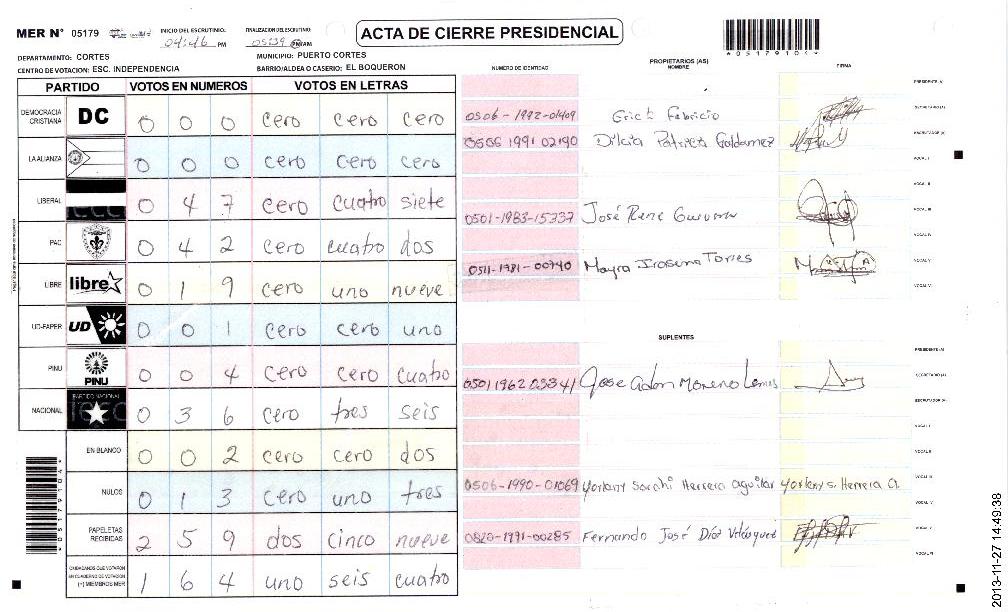 MER N° 05179
INICIO DEL ESCRUTINIO: 04:46 PM
FINALIZACION DEL ESCRUTINIO: 05:39 PM AM
ACTA DE CIERRE PRESIDENCIAL
*05179104*
DEPARTAMENTO: CORTES
MUNICIPIO: PUERTO CORTES
CENTRO DE VOTACION: ESC. INDEPENDENCIA
BARRIO/ALDEA O CASERIO: EL BOQUERON
PARTIDO VOTOS EN NUMEROS VOTOS EN LETRAS
DEMOCRACIA CRISTIANA DC 0 0 0 cero cero cero
LA ALIANZA 0 0 0 cero cero cero
LIBERAL 0 4 7 cero cuatro siete
PAC 0 4 2 cero cuatro dos
LIBRE libre 0 1 9 cero uno nueve
UD-FAPER UD 0 0 1 cero cero uno
PINU PINU 0 0 4 cero cero cuatro
NACIONAL PARTIDO NACIONAL 0 3 6 cero tres seis
EN BLANCO 0 0 2 cero cero dos
NULOS 0 1 3 cero uno tres
PAPELETAS RECIBIDAS 2 5 9 dos cinco nueve
CIUDADANOS QUE VOTARON EN CUADERNO DE VOTACION (+) MIEMBROS MER 1 6 4 uno seis cuatro
PROPIETARIOS (AS)
NUMERO DE IDENTIDAD NOMBRE FIRMA
PRESIDENTE (A)
0506-1992-01409 Erick Fabricio SECRETARIO (A)
0506 1991 02190 Dilcia Patricia Galdamez ESCRUTADOR (A)
VOCAL I
VOCAL II
0501-1983-15337 José Rene VOCAL III
VOCAL IV
0511-1981-00740 Mayra Torres VOCAL V
VOCAL VI
SUPLENTES
PRESIDENTE (A)
0501196203341 Jose Adan Moreno Lemus SECRETARIO (A)
ESCRUTADOR (A)
VOCAL I
VOCAL II
0506-1990-01069 Yorleny Sarahi Herrera aguilar Yorleny S. Herrera A. VOCAL III
VOCAL IV
0820-1991-00285 Fernando José Díaz Velásquez VOCAL V
VOCAL VI
2013-11-27 14:49:38